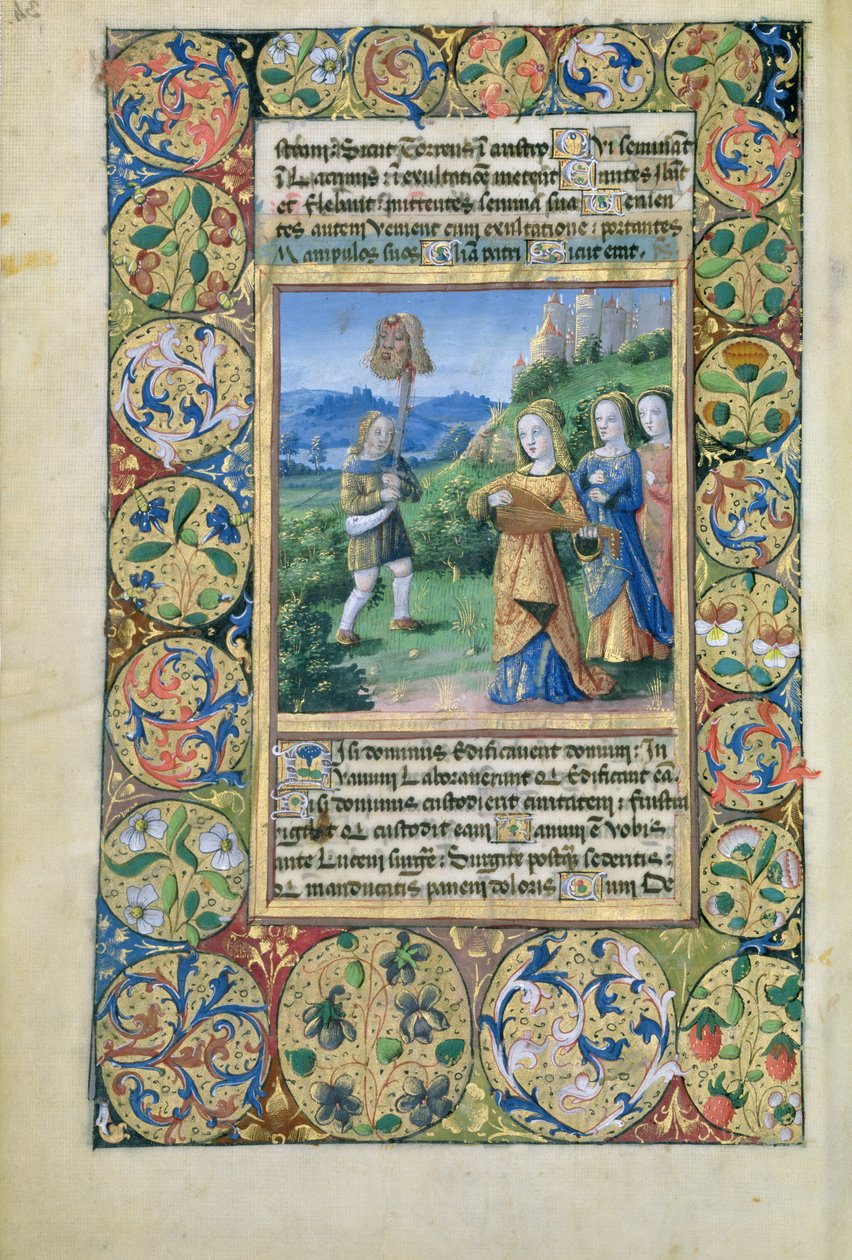 strum : Sicut Torrens ĩ austro Qui seminãt
ĩ Lacrimis : ĩ exultatiõe metent Euntes Ibãt
et flebãt : mittentes semina sua Uenien
tes autem Venient cum exultatione : portantes
Manipulos suos Gl'ia patri Sicut erat .
Nisi dominus Edificaverit domum : In
Vanum Laboraverunt qL Edificant eã .
Nisi dominus custodierit civitatem : frustra
vigilat qL custodit eam Vanum ẽ Vobis
ante Lucem surgere : Surgite postq̃ sederitis :
qL manducatis panem doloris Cum De